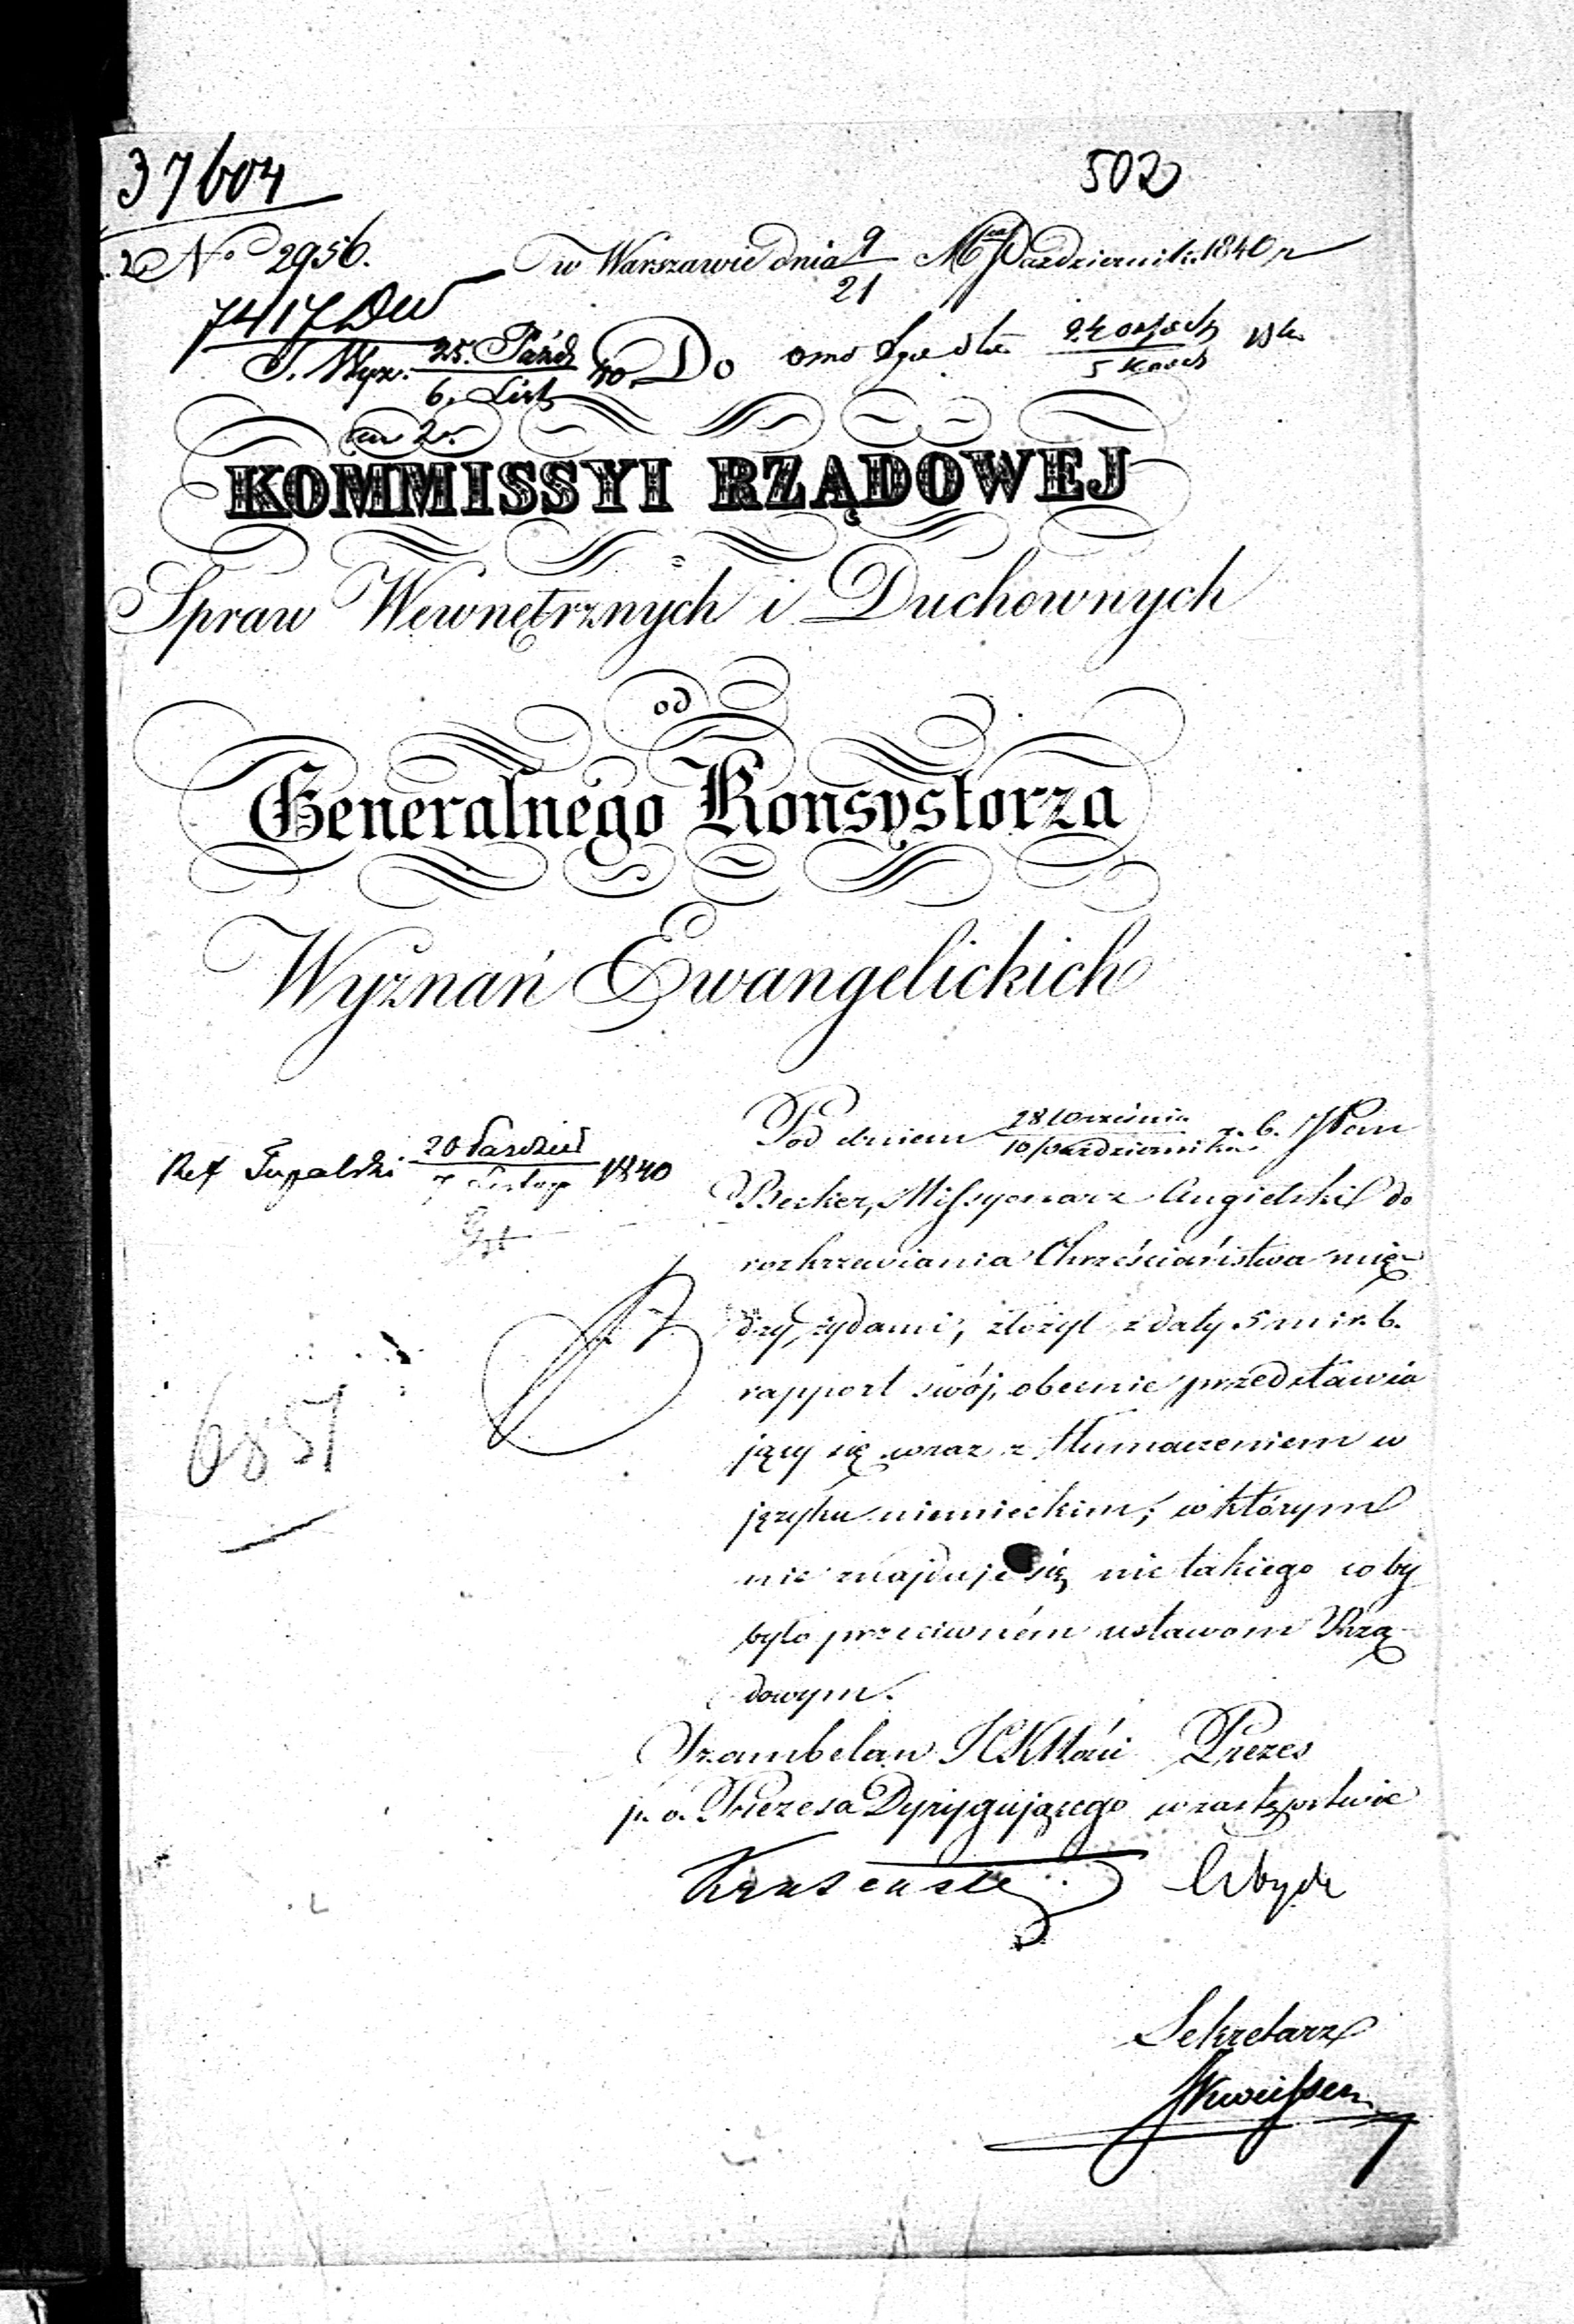 37604
502
No 2956.
w Warszawie dnia 9/21 Mca Października 1840 r
7417 DW
S. Wyz. 25. Paźdz / 6. List 40.
Do
KOMMISSYI RZĄDOWEJ
Spraw Wewnętrznych i Duchownych
od
Generalnego Konsystorza
Wyznań Ewangelickich
Ref Tupalski 20 Paździer / 1840
Pod dniem 28 Września / 10 Października r. b. JPan
Becker, Missyonarz Angielski do
rozkrzewiania Chrześciaństwa mię-
dzy żydami, złożył z daty 5 m i r. b.
rapport swój, obecnie przedstawia
jący się wraz z tłumaczeniem w
języku niemieckim; w którym
nie znajduje się nic takiego coby
było przeciwném ustawom Rzą-
dowym.
6851
Szambelan Prezes
p. o. Prezesa Dyrygującego w zastępstwie
Sekretarz